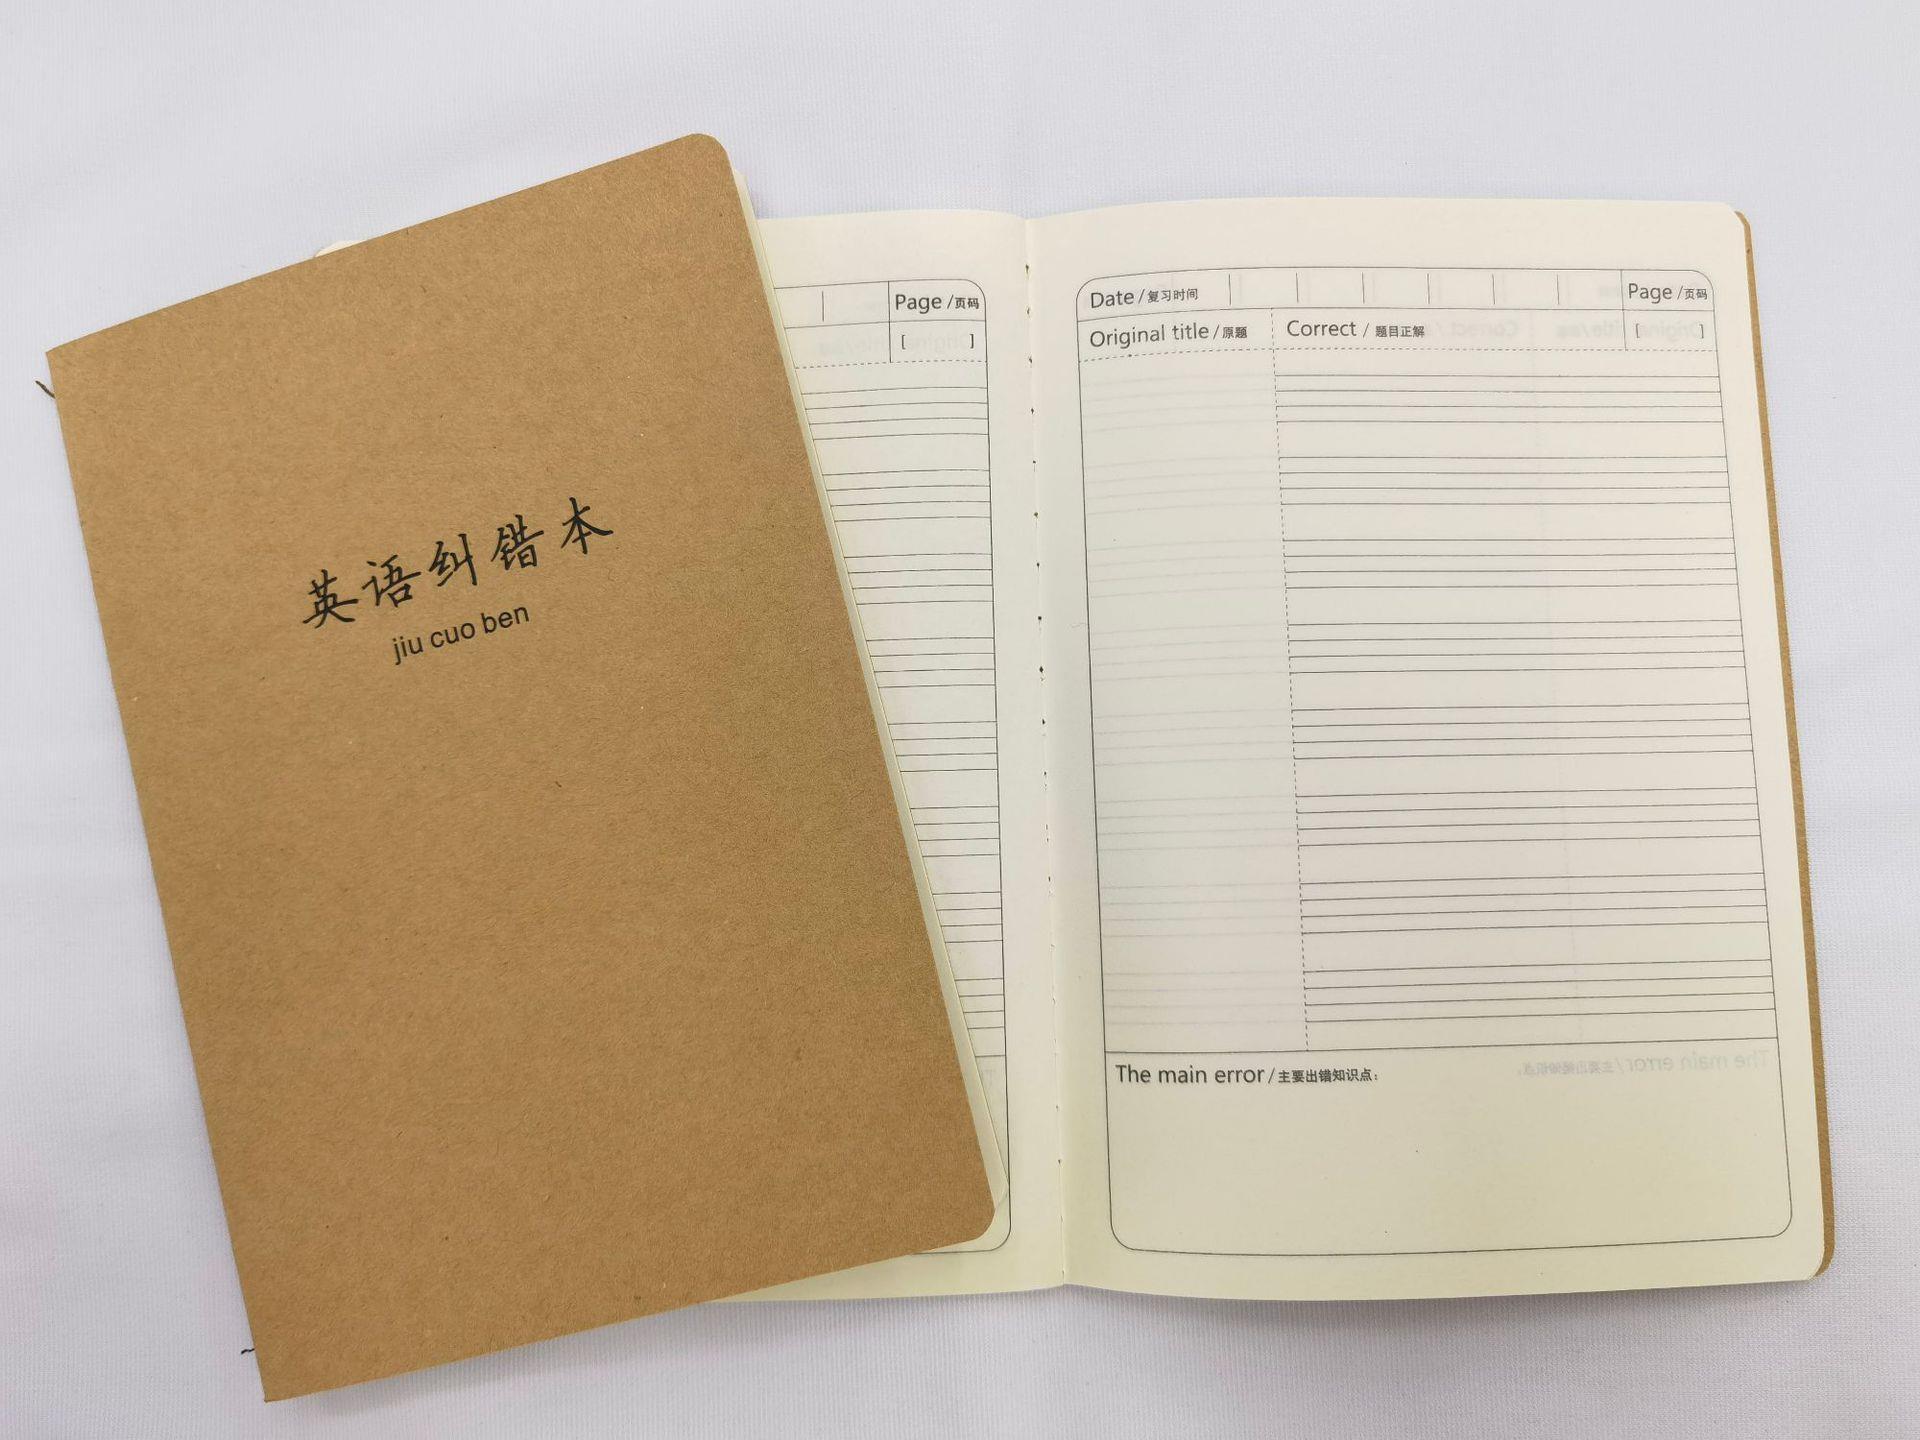 英语纠错本
jiu cuo ben
Page /页码
[ ]
Date / 复习时间 Page /页码
Original title / 原题 Correct / 题目正解 [ ]
The main error / 主要出错知识点: